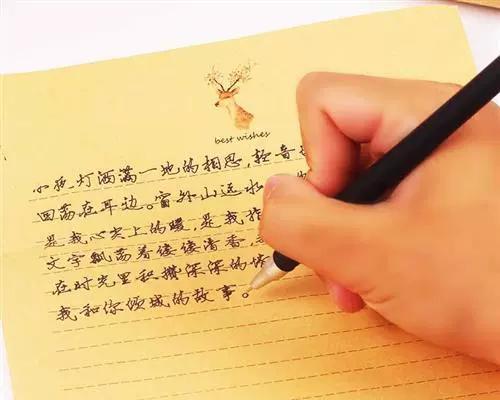 best wishes
小夜灯洒满一地的相思,轻音
回荡在耳边。窗外山远水
是我心尖上的暖,是我指
文字飘荡着缕缕清香,
在时光里积攒深深的情
我和你倾城的故事。